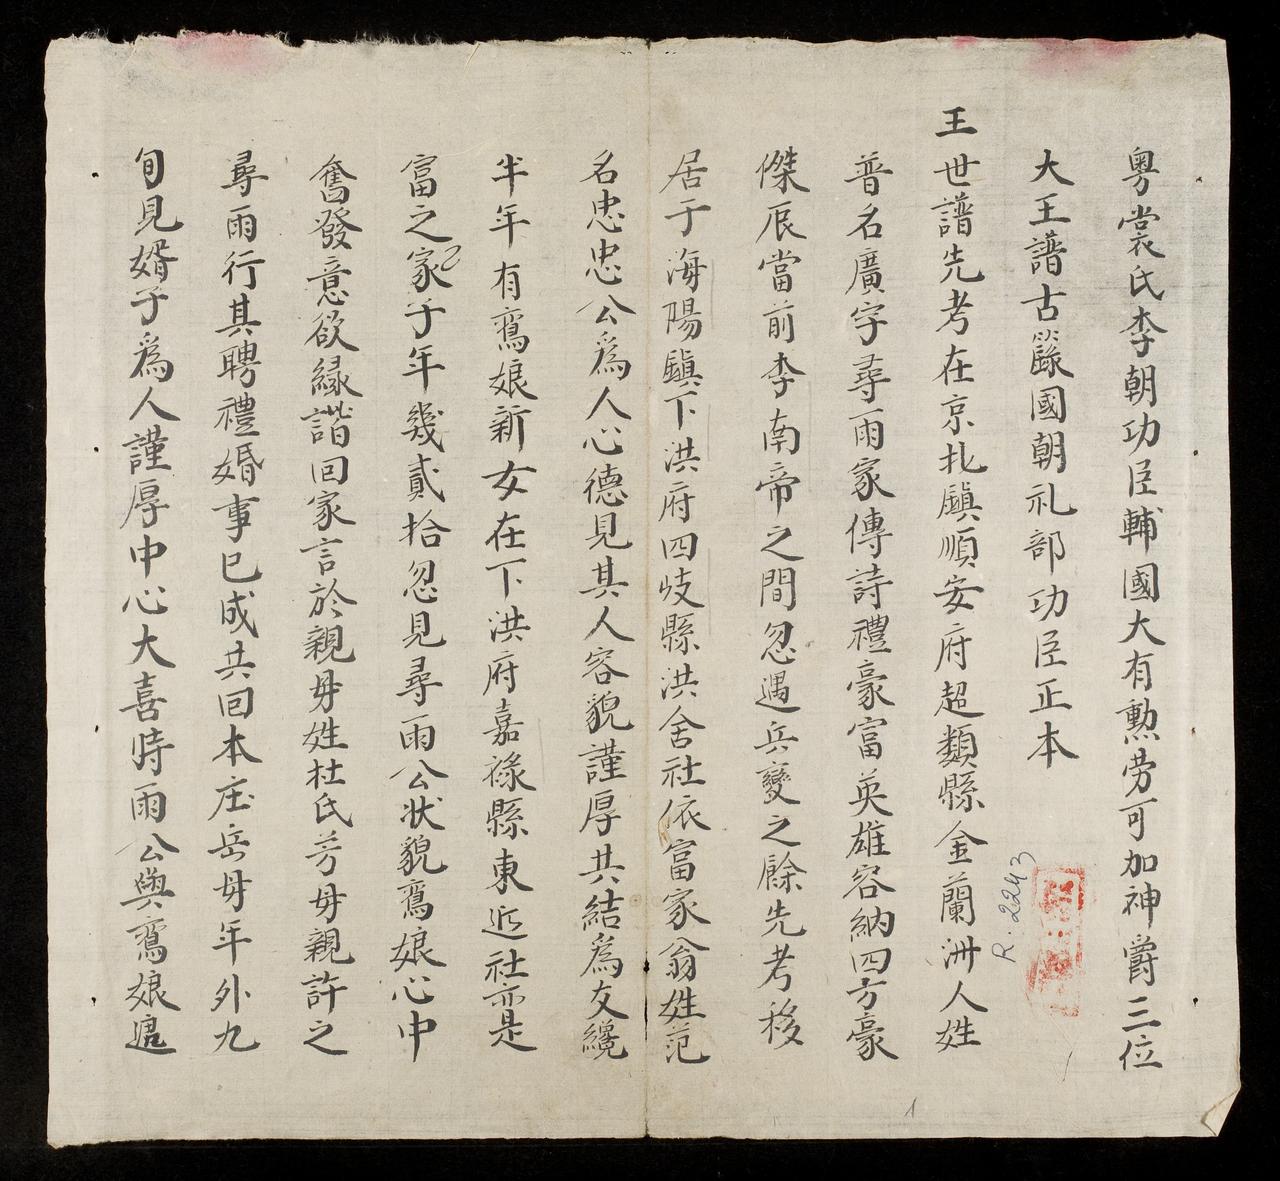 粵裳氏李朝功臣輔國大有勲劳可加神爵三位
大王譜古籙國朝礼部功臣正本
王世譜先考在京北鎮順安府超類縣金蘭洲人姓
普名廣字尋雨家傳詩禮豪富英雄容納四方豪
傑辰當前李南帝之間忽遇兵變之餘先考移
居于海陽鎮下洪府四岐縣洪舍社依富家翁姓范
名忠忠公為人心德見其人容貌謹厚共結為友纔
半年有鸞娘新女在下洪府嘉祿縣東近社亦是
富之家子年幾貳拾忽見尋雨公状貌鸞娘心中
奮發意欲緣諧回家言於親母姓杜氏芳母親許之
尋雨行其聘禮婚事已成共回本庄岳母年外九
旬見婿子為人謹厚中心大喜時雨公與鸞娘還
R.2243
1